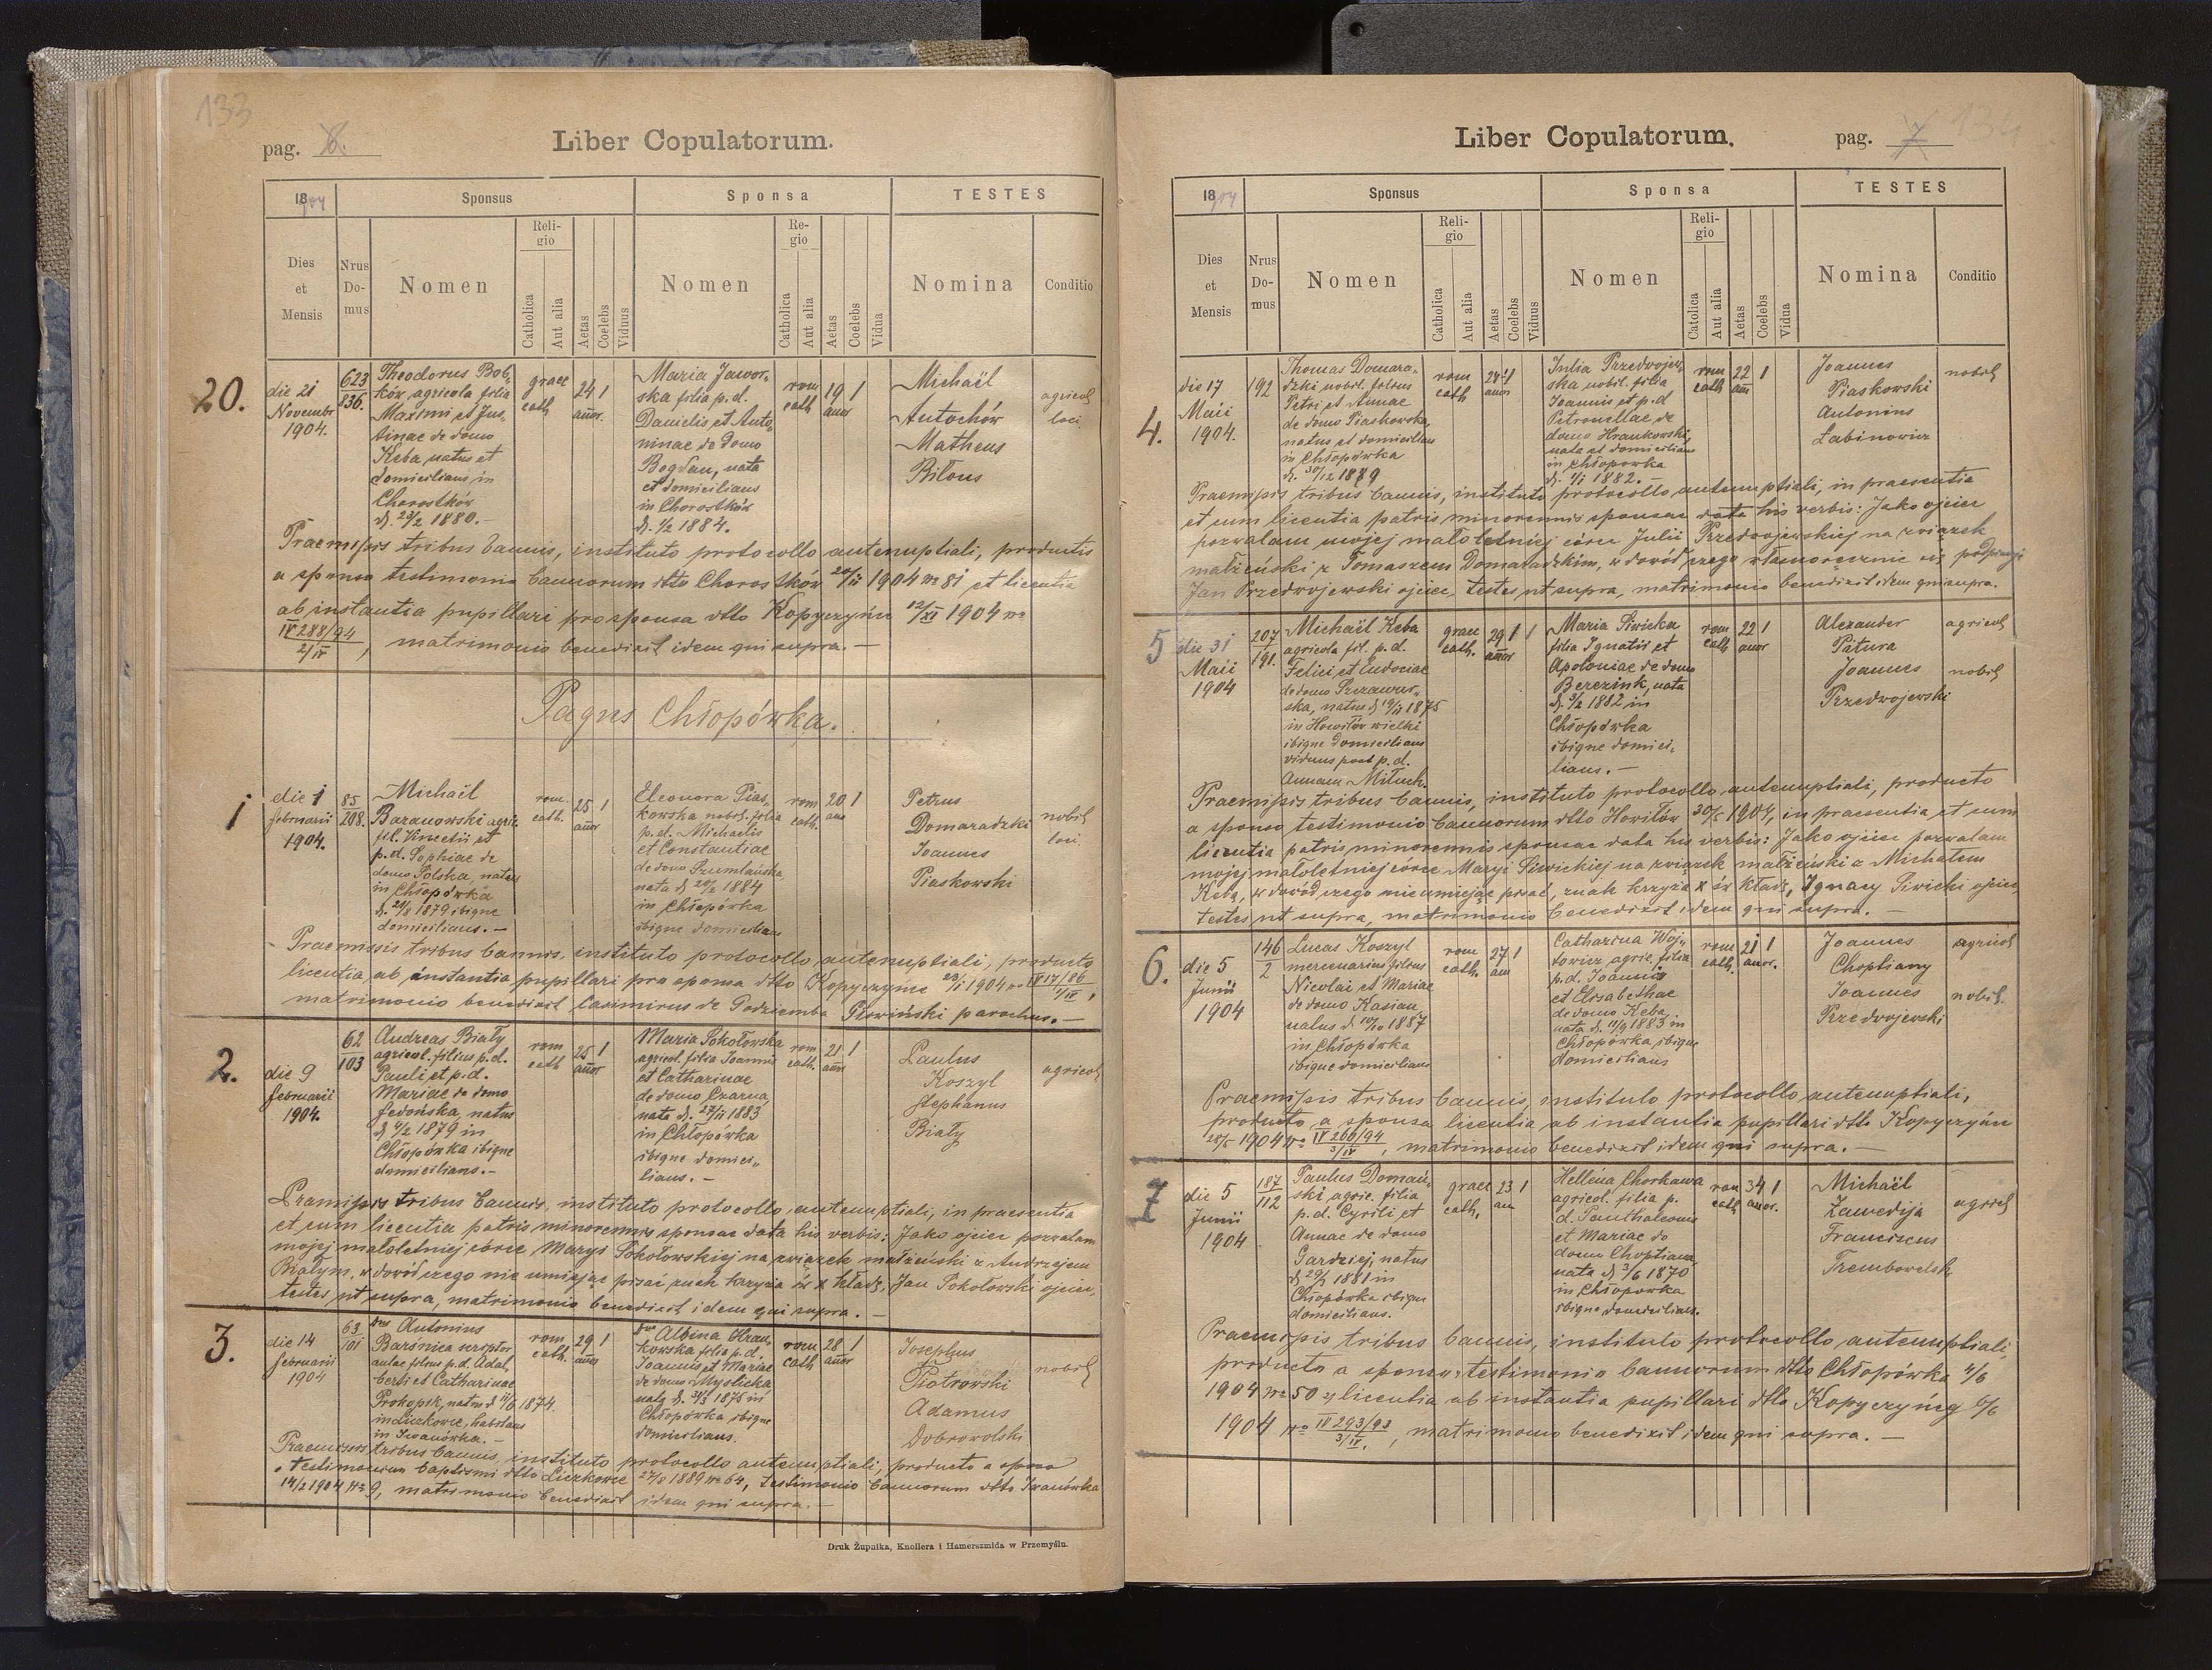 133
pag. 6.
Liber Copulatorum.
1904
Sponsus
Sponsa
TESTES
Dies et Mensis
Nrus Domus
Nomen
Religio
Catholica
Aut alia
Aetas
Coelebs
Viduus
Nomen
Religio
Catholica
Aut alia
Aetas
Coelebs
Vidua
Nomina
Conditio
20.
die 21
Novembr
1904.
623
836.
Theodorus Bob-
ków, agricola filius
Maximi et Jus-
tinae de domo
Keba, natus et
domicilians in
Chorostków
d. 23/2 1880.-
graec
cath
24
anor.
1
Maria Jawor-
ska filia p. d.
Danielis et Anto-
ninae de domo
Bogdan, nata
et domicilians
in Chorostków
d. 1/2 1884.
rom
cath
19
anor
1
Michaël
Antochów
Matheus
Biłous
agricol
loci
Praemissis tribus bannis, instituto protocollo antenuptiali, productis
a sponso testimonio bannorum dtto Chorostków 20/XI 1904 no 81 et licentia
ab instantia pupillari pro sponsa dtto Kopyczyńce 12/XI 1904 no
IV 288/94
2/IV, matrimonio benedixit idem qui supra.-
Pagus Chłopówka.
1
die 1
februarii
1904.
85
208.
Michaël
Baranowski agric.
fil. Vincetii et
p. d. Sophiae de
domo Polska, natus
in Chłopówka
d. 21/8 1879 ibique
domicilians.-
rom.
cath.
25
anor
1
Eleonora Pias-
kowska nobil. filia
p. d. Michaelis
et Constantiae
de domo Szumlańska
nata d. 20/2 1884
in Chłopówka
ibique domicilians
rom
cath.
20
ano
1
Petrus
Domaradzki
Joannes
Piaskowski
nobil
loci.
Praemissis tribus bannis, instituto protocollo antenuptiali, producto
licentia ab instantia pupillari pro sponsa dtto Kopyczyńce 1904 no IV 17/86
matrimonio benedixit Casimirus de Godziemba Głowiński parochus.-
2.
die 9
februarii
1904.
62
103
Andreas Biały
agricol. filius p. d.
Pauli et p. d.
Mariae de domo
Fedońska, natus
d. 4/2 1879 in
Chłopówka ibique
domicilians.-
rom
cath
25
anor
1
Maria Sokołowska
agricol. filia Joannis
et Catharinae
de domo Czarna
nata d. 27/11 1883
in Chłopówka
ibique domici-
lians.-
rom
cath.
21
anor
1
Paulus
Koszyl
Stephanus
Biały
agricol
Pramissis tribus bannis, instituto protocollo antenuptiali, in praesentia
et cum licentia patris minorennis sponsae data his verbis: Jako ojciec pozwalam
mojej małoletniej córce Maryi Sokołowskiej na związek małżeński z Andrzejem
Białym, w dowód czego nie umiejąc pisać znak krzyża św x kładę. Jan Sokołowski ojciec,
testes ut supra, matrimonio benedixit idem qui supra.-
3.
die 14
februarii
1904
63
101
Dns Antonius
Barśnica scriptor
aulae filius p. d. Adal-
berti et Catharinae
Prokopik, natus d 11/6 1874
in Liczkowce, habitans
in Iwanówka.-
rom
cath.
29
anor
1
Dna Albina Hran-
kowska filia p. d.
Joannis et Mariae
de domo Myślicka
nata d. 31/3 1875 in
Chłopówka, ibique
domicilians.
rom
cath
28
anor
1
Josephus
Piotrowski
Adamus
Dobrowolski
nobil
Praemissis tribus bannis, instituto protocollo antenuptiali, producto a sponso
testimonium baptismi dtto Liczkowce 27/8 1889 no 64, testimonio bannorum dtto Iwanówka
14/2 1904 no 9, matrimonio benedixit idem qui supra.-
Druk Żupnika, Knollera i Hamerszmida w Przemyślu.
134
Liber Copulatorum.
pag. 7
1904
Sponsus
Sponsa
TESTES
Dies et Mensis
Nrus Domus
Nomen
Religio
Catholica
Aut alia
Aetas
Coelebs
Viduus
Nomen
Religio
Catolica
Aut alia
Aetas
Coelebs
Vidua
Nomina
Conditio
4.
die 17
Maii
1904.
192
Thomas Domara-
dzki nobil. filius
Petri et Annae
de domo Piaskowska,
natus et domicilians
in Chłopówka
d. 30/12 1879
rom
cath
24
anor
1
Julia Przedwojew-
ska nobil. filia
Joannis et p. d
Petronellae de
domo Hrankowski,
nata et domicilians
in Chłopówka
d. 1/1 1882.-
rom
cath
22
ann
1
Joannes
Piaskowski
Antonius
Łabinowicz
nobil
Praemissis tribus bannis, instituto protocollo antenuptiali, in praesentia
et cum licentia patris minorennis sponsae data his verbis: Jako ojciec
pozwalam mojej małoletniej córce Julii Przedwojewskiej na związek
małżeński z Tomaszem Domaradzkim, w dowód czego własnoręcznie się podpisuję
Jan Przedwojewski ojciec, testes ut supra, matrimonio benedixit idem qui supra.
5
die 31
Maii
1904
207
191.
Michaël Keba
agricola fil. p. d.
Felici et Eudociae
de domo Szczawur-
ska, natus d 19/11 1875
in Howiłów wielki
ibique domicilians
viduus post p. d.
Annam Miluch.
graec
cath.
29
anor
1
Maria Siwicka
filia Ignatii et
Apoloniae de domo
Berezink, nata
d. 3/2 1882 in
Chłopówka
ibique domici-
lians.-
rom
cath
22
anor
1
Alexander
Patura
Joannes
Przedwojewski
agricol
nobil
Praemissis tribus bannis, instituto protocollo antenuptiali, producto
a sponso testimonio bannorum dtto Howiłów 30/5 1904, in praesentia et cum
licentia patris minorennis sponsae data his verbis: Jako ojciec pozwalam
mojej małoletniej córce Maryi Siwickiej na związek małżeński z Michałem
Kebą, w dowód czego nie umiejąc pisać, znak krzyża x św kładę, Ignacy Siwicki ojciec,
testes ut supra, matrimonio benedixit idem qui supra.-
6.
die 5
Junii
1904
146
2
Lucas Koszyl
mercenarius filius
Nicolai et Mariae
de domo Kasian
natus d. 10/10 1887
in Chłopówka
ibique domicilians
rom
cath.
27
ann
1
Catharina Woj-
towicz agric. filia
p. d. Joannis
et Elisabethae
de domo Keba,
nata d. 11/9 1883 in
Chłopówka ibique
domicilians
rom
cath.
21
anor.
1
Joannes
Choptiany
Joannes
Przedwojewski
agricol
nobil.
Praemissis tribus bannis, instituto protocollo antenuptiali,
producto a sponsa licentia ab instantia pupillari dtto Kopyczyńce
28/5 1904 no IV 260/94
3/IV, matrimonio benedixit idem qui supra.-
7
die 5
Junii
1904
187
112
Paulus Domań-
ski agric. filius
p. d. Cyrili et
Annae de domo
Gardziej, natus
d 29/1 1881 in
Chłopówka ibique
domicilians.
graec
cath.
23
an
1
Helléna Chorkawa
agricol. filia p.
d. Panthaleonis
et Mariae de
domo Choptiana,
nata d 3/6 1870
in Chłopówka
ibique domicilians.
rom
cath
34
anor.
1
Michaël
Zawedija
Franciscus
Trembowelski
agricol
Praemissis tribus bannis, instituto protocollo antenuptiali,
producto a sponso testimonio bannorum dtto Chłopówka 4/6
1904 no 50 licentia ab instantia pupillari dtto Kopyczyńce 6/6
1904 no IV 293/93
3/IV, matrimonio benedixit idem qui supra.-